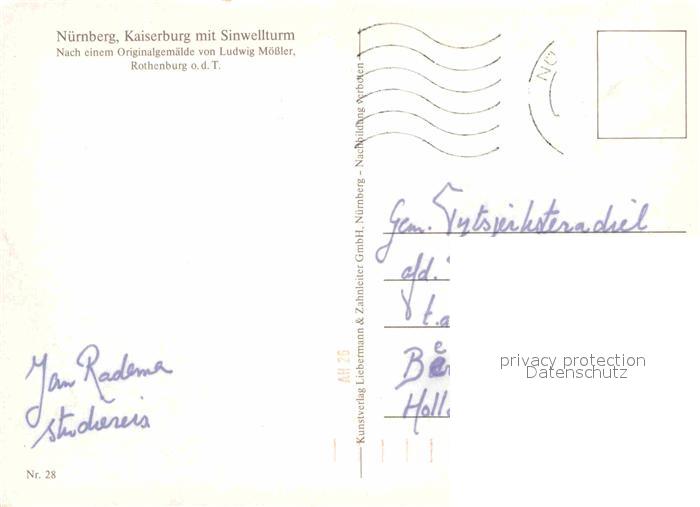 Nürnberg, Kaiserburg mit Sinwellturm
Nach einem Originalgemälde von Ludwig Mößler,
Rothenburg o. d. T.
Kunstverlag Liebermann & Zahnleiter GmbH, Nürnberg – Nachbildung verboten –
NÜ
Gem.
afd.
t.a
Be
Holl
Jan Radema
studiereis
AH 26
privacy protection
Datenschutz
Nr. 28